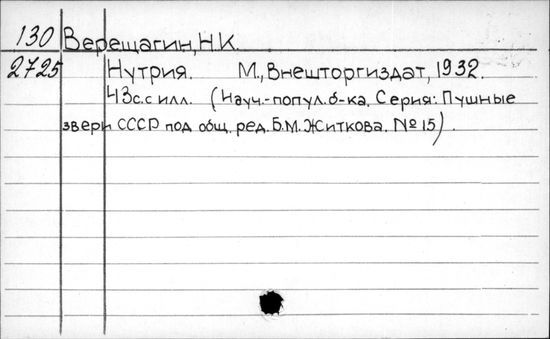 130 Верещагин, Н.К.
2725 Нутрия. М., Внешторгиздат, 1932.
43с. с илл. (Науч.-попул. б-ка. Серия: Пушные
звери СССР под общ. ред. Б.М. Житкова. №15).